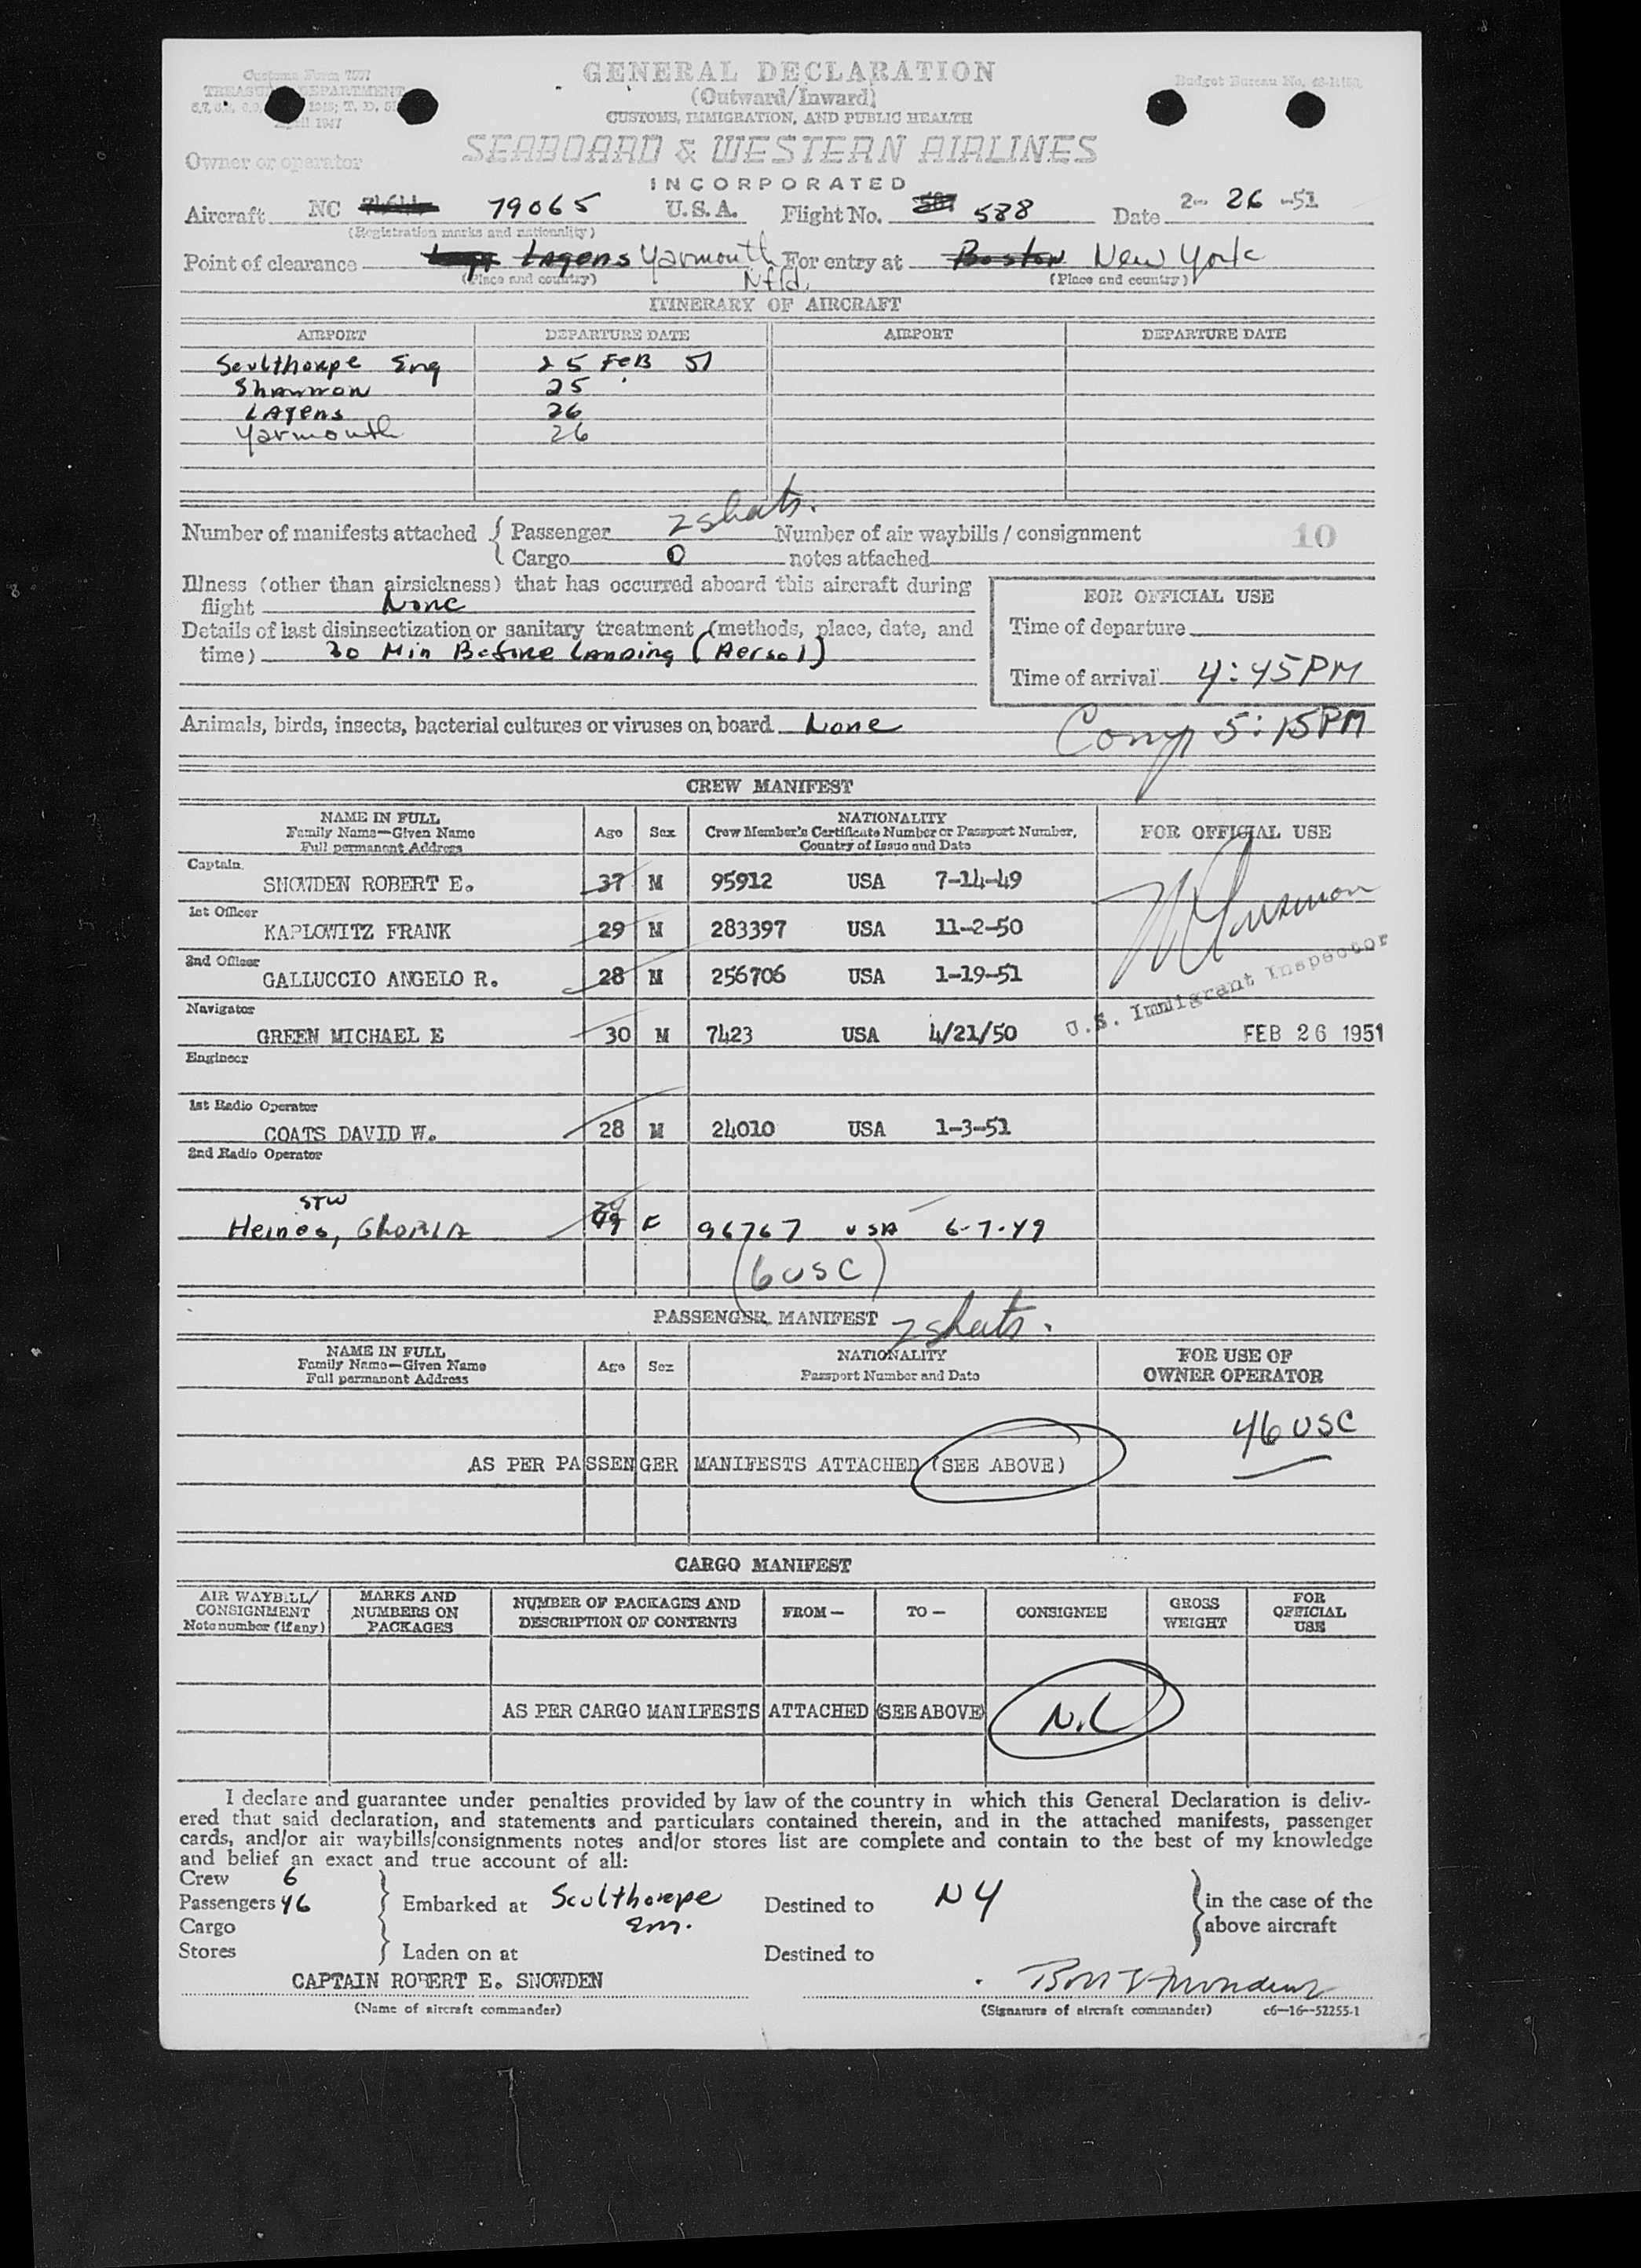 Customs Form 7507
TREASURY DEPARTMENT
April 1947
GENERAL DECLARATION
(Outward/Inward)
CUSTOMS, IMMIGRATION, AND PUBLIC HEALTH
Budget Bureau No.
SEABOARD & WESTERN AIRLINES
INCORPORATED
Owner or operator
Aircraft NC 79065 U.S.A. Flight No. 507 588 Date 2- 26 -51
(Registration marks and nationality)
Point of clearance Lagens Yarmouth Nfld. For entry at Boston New York
(Place and country) (Place and country)
ITINERARY OF AIRCRAFT
AIRPORT DEPARTURE DATE AIRPORT DEPARTURE DATE
Sculthorpe Eng 25 FEB 51
Shannon 25
LAgens 26
Yarmouth 26
Number of manifests attached { Passenger 2 sheets. Number of air waybills / consignment 10
Cargo 0 notes attached
Illness (other than airsickness) that has occurred aboard this aircraft during
flight None
Details of last disinsectization or sanitary treatment (methods, place, date, and
time) 30 Min Before Landing (Aersol)
FOR OFFICIAL USE
Time of departure
Time of arrival 4:45PM
Animals, birds, insects, bacterial cultures or viruses on board None
Comp 5:15PM
CREW MANIFEST
NAME IN FULL
Family Name—Given Name
Full permanent Address
Age Sex
NATIONALITY
Crew Member's Certificate Number or Passport Number,
Country of Issue and Date
FOR OFFICIAL USE
Captain
SNOWDEN ROBERT E. 37 M 95912 USA 7-14-49
1st Officer
KAPLOWITZ FRANK 29 M 283397 USA 11-2-50
2nd Officer
GALLUCCIO ANGELO R. 28 M 256706 USA 1-19-51
U.S. Immigrant Inspector
Navigator
GREEN MICHAEL E 30 M 7423 USA 4/21/50 FEB 26 1951
Engineer
1st Radio Operator
COATS DAVID W. 28 M 24010 USA 1-3-51
2nd Radio Operator
STW
Heines, GLORIA F 96767 USA 6-7-49
(6 USC)
PASSENGER MANIFEST 2 sheets.
NAME IN FULL
Family Name—Given Name
Full permanent Address
Age Sex
NATIONALITY
Passport Number and Date
FOR USE OF
OWNER OPERATOR
46 USC
AS PER PASSENGER MANIFESTS ATTACHED (SEE ABOVE)
CARGO MANIFEST
AIR WAYBILL/
CONSIGNMENT
Note number (if any)
MARKS AND
NUMBERS ON
PACKAGES
NUMBER OF PACKAGES AND
DESCRIPTION OF CONTENTS
FROM— TO— CONSIGNEE
GROSS
WEIGHT
FOR
OFFICIAL
USE
AS PER CARGO MANIFESTS ATTACHED (SEE ABOVE) NIL
I declare and guarantee under penalties provided by law of the country in which this General Declaration is deliv-
ered that said declaration, and statements and particulars contained therein, and in the attached manifests, passenger
cards, and/or air waybills/consignments notes and/or stores list are complete and contain to the best of my knowledge
and belief an exact and true account of all:
Crew 6
Passengers 46 Embarked at Sculthorpe Destined to NY in the case of the
Cargo above aircraft
Stores Laden on at Destined to
CAPTAIN ROBERT E. SNOWDEN
(Name of aircraft commander) (Signature of aircraft commander) c6—16—52255-1